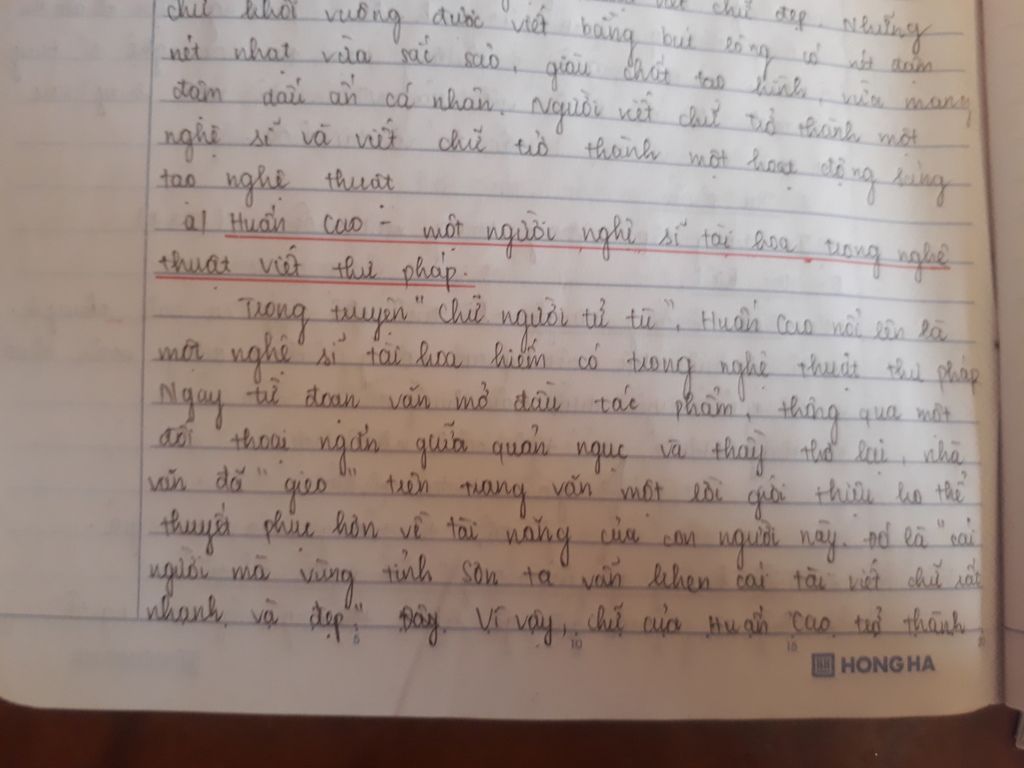 viết chữ đẹp. Những
chữ khối vuông được viết bằng bút lông có nét đậm
nét nhạt vừa sắc sảo, giàu chất tạo hình, vừa mang
đậm dấu ấn cá nhân. Người viết chữ trở thành một
nghệ sĩ và viết chữ trở thành một hoạt động sáng
tạo nghệ thuật
a/ Huấn Cao - một người nghệ sĩ tài hoa trong nghệ
thuật viết thư pháp.
Trong truyện "Chữ người tử tù", Huấn Cao nổi lên là
một nghệ sĩ tài hoa hiếm có trong nghệ thuật thư pháp
Ngay từ đoạn văn mở đầu tác phẩm, thông qua một
đối thoại ngắn giữa quản ngục và thầy thơ lại, nhà
văn đã "gieo" trên trang văn một lời giới thiệu ko thể
thuyết phục hơn về tài năng của con người này. Đó là "cái
người mà vùng tỉnh Sơn ta vẫn khen cái tài viết chữ rất
nhanh và đẹp" Đây. Vì vậy, chữ của Huấn Cao trở thành
5 10 15
HH HONG HA